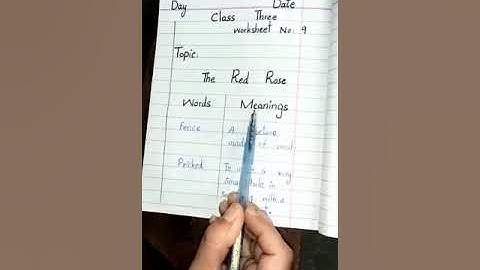 Day Date
Class Three
Worksheet No: 9
Topic:
The Red Rose
Words Meanings
Fence A
made of
Pricked To make a very
small hole in
with a